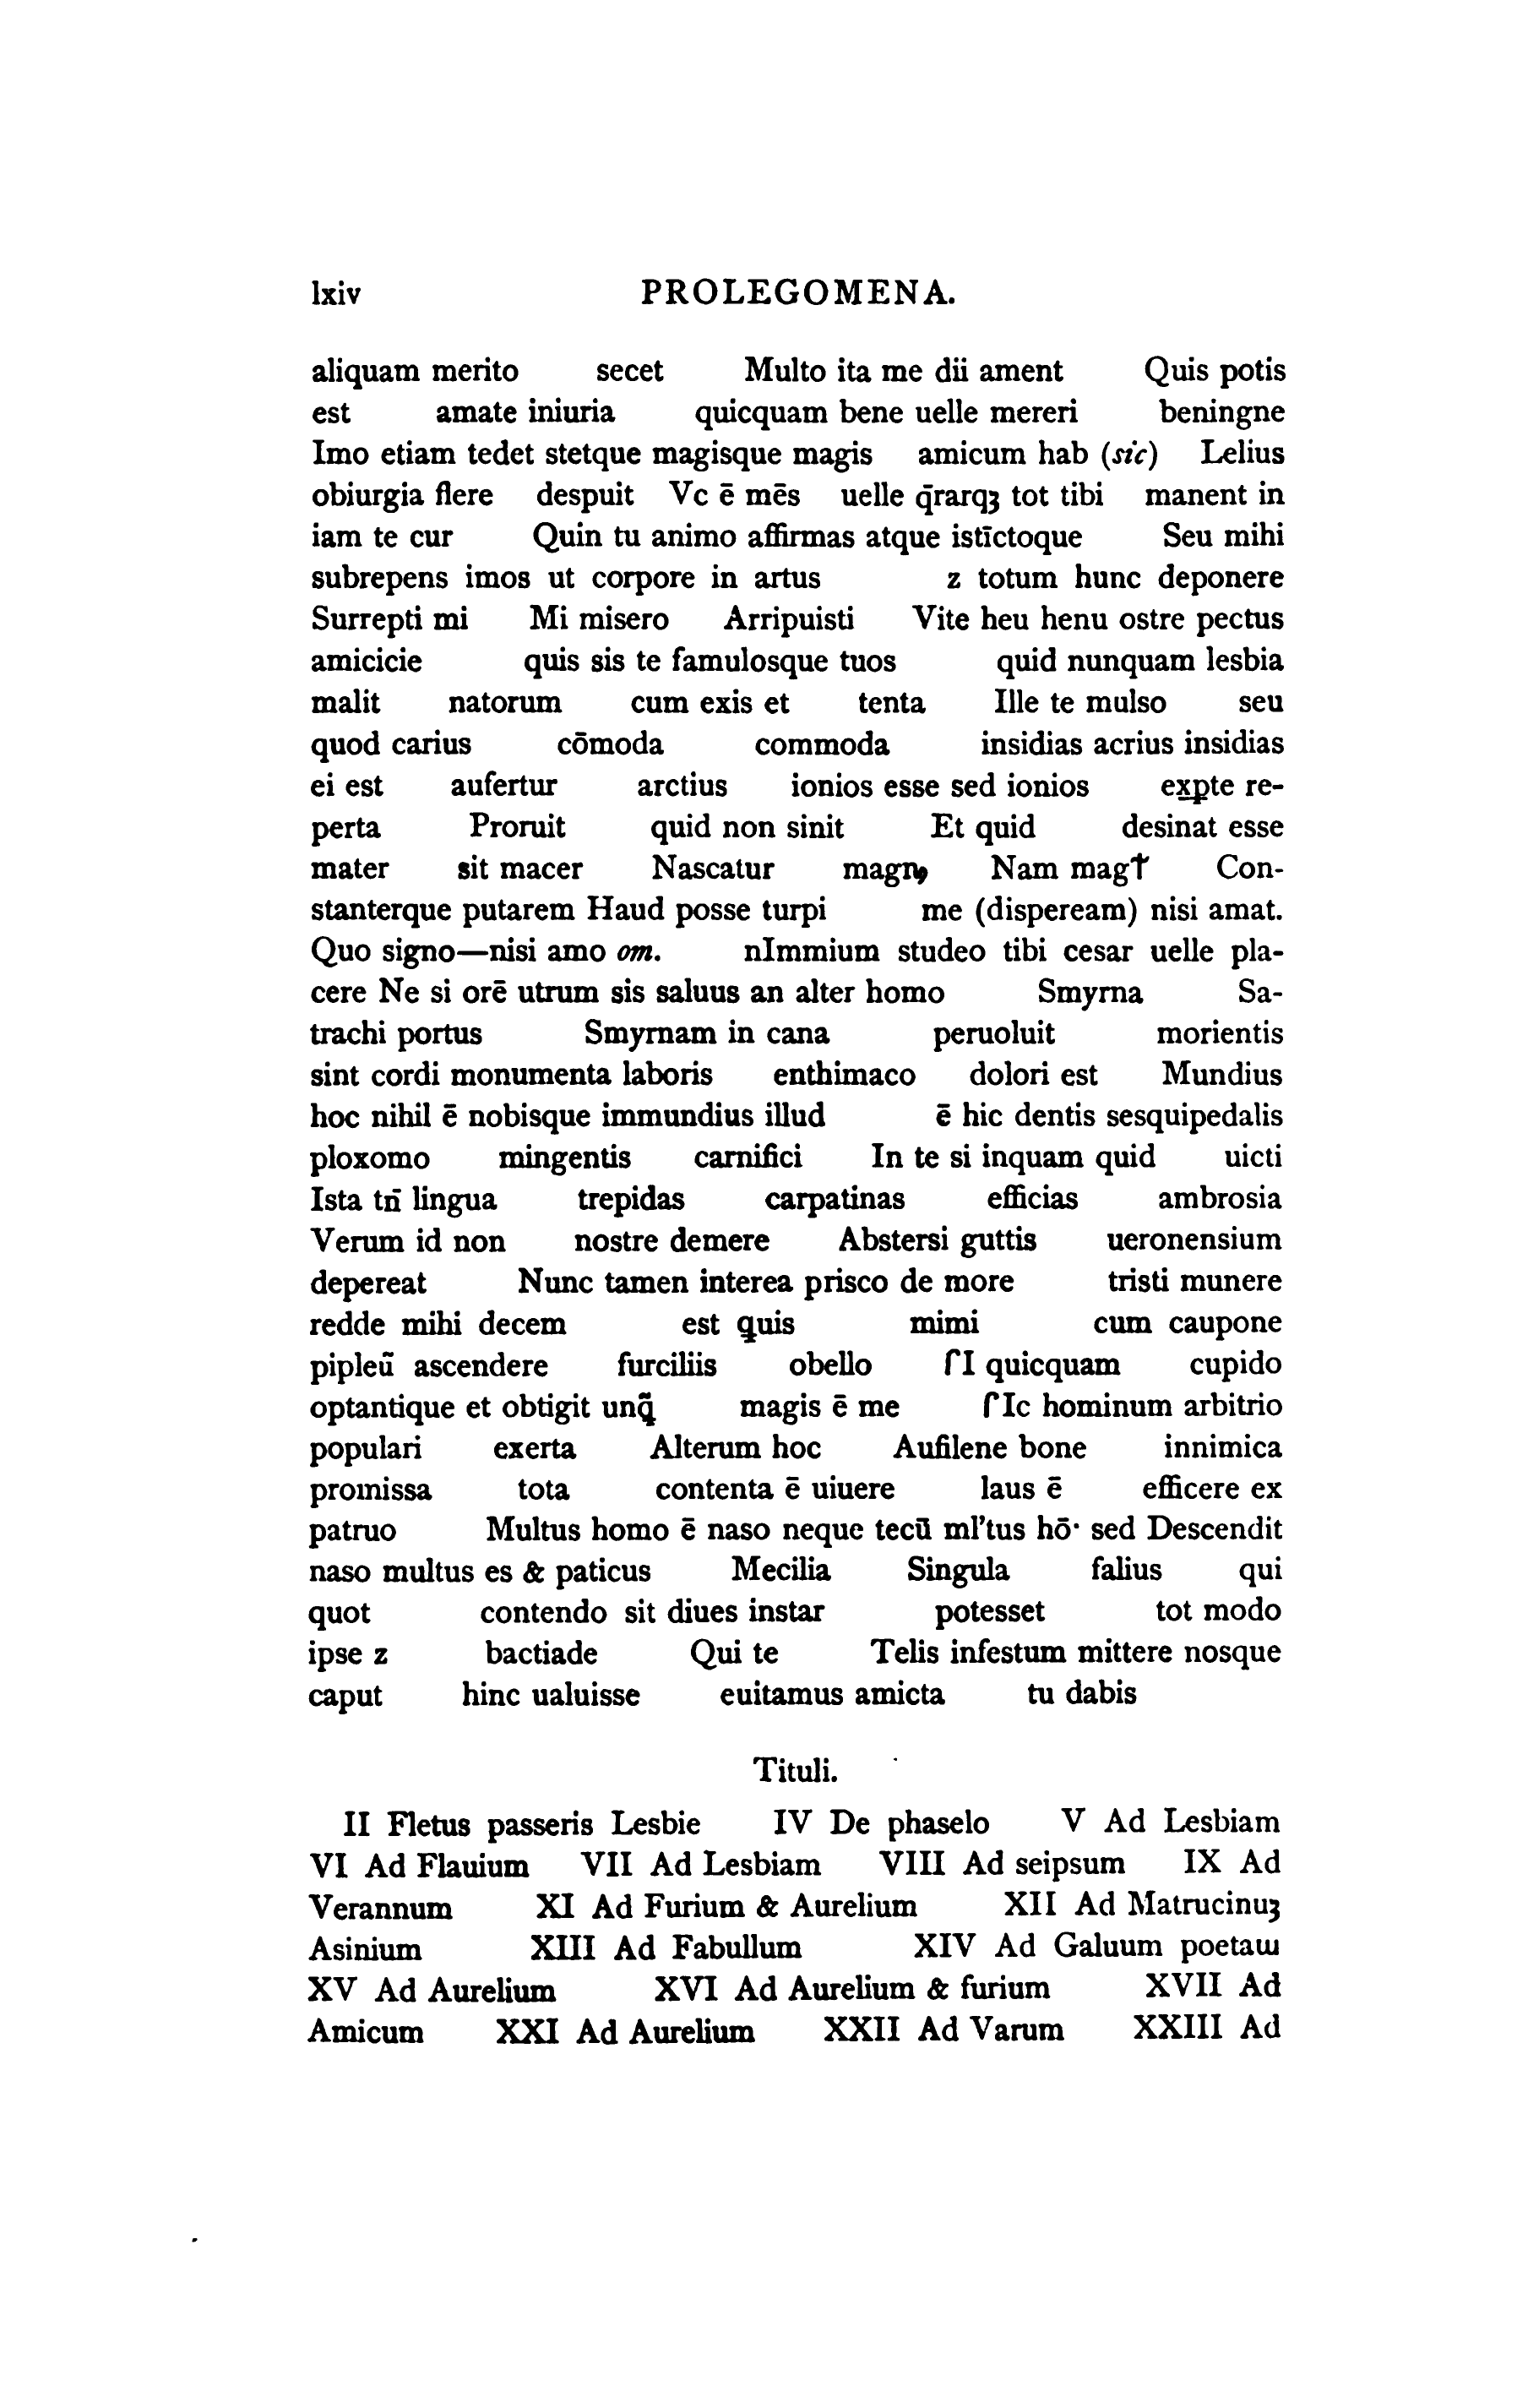 lxiv PROLEGOMENA.
aliquam merito secet Multo ita me dii ament Quis potis
est amate iniuria quicquam bene uelle mereri beningne
Imo etiam tedet stetque magisque magis amicum hab (sic) Lelius
obiurgia flere despuit Vc ē mēs uelle q̄rarqꝫ tot tibi manent in
iam te cur Quin tu animo affirmas atque istīctoque Seu mihi
subrepens imos ut corpore in artus z totum hunc deponere
Surrepti mi Mi misero Arripuisti Vite heu henu ostre pectus
amicicie quis sis te famulosque tuos quid nunquam lesbia
malit natorum cum exis et tenta Ille te mulso seu
quod carius cōmoda commoda insidias acrius insidias
ei est aufertur arctius ionios esse sed ionios exꝑte re-
perta Proruit quid non sinit Et quid desinat esse
mater sit macer Nascatur magnꝯ Nam mag† Con-
stanterque putarem Haud posse turpi me (dispeream) nisi amat.
Quo signo—nisi amo om. nImmium studeo tibi cesar uelle pla-
cere Ne si orē utrum sis saluus an alter homo Smyrna Sa-
trachi portus Smyrnam in cana peruoluit morientis
sint cordi monumenta laboris enthimaco dolori est Mundius
hoc nihil ē nobisque immundius illud ē hic dentis sesquipedalis
ploxomo mingentis carnifici In te si inquam quid uicti
Ista tn̄ lingua trepidas carpatinas efficias ambrosia
Verum id non nostre demere Abstersi guttis ueronensium
depereat Nunc tamen interea prisco de more tristi munere
redde mihi decem est ꝗuis mimi cum caupone
pipleū ascendere furciliis obello ſI quicquam cupido
optantique et obtigit unꝗ̄ magis ē me ſIc hominum arbitrio
populari exerta Alterum hoc Aufilene bone innimica
promissa tota contenta ē uiuere laus ē efficere ex
patruo Multus homo ē naso neque tecū ml'tus hō· sed Descendit
naso multus es & paticus Mecilia Singula falius qui
quot contendo sit diues instar potesset tot modo
ipse z bactiade Qui te Telis infestum mittere nosque
caput hinc ualuisse euitamus amicta tu dabis
Tituli.
II Fletus passeris Lesbie IV De phaselo V Ad Lesbiam
VI Ad Flauium VII Ad Lesbiam VIII Ad seipsum IX Ad
Verannum XI Ad Furium & Aurelium XII Ad Matrucinuꝫ
Asinium XIII Ad Fabullum XIV Ad Galuum poetaɯ
XV Ad Aurelium XVI Ad Aurelium & furium XVII Ad
Amicum XXI Ad Aurelium XXII Ad Varum XXIII Ad